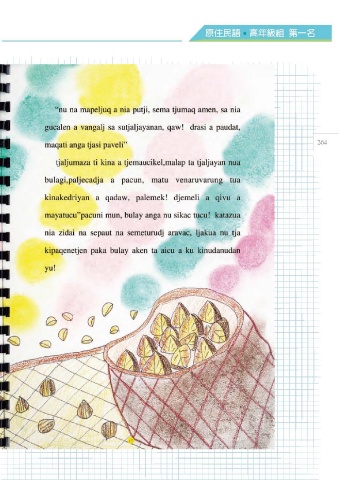 原住民語・高年級組 第一名
"nu na mapeljuq a nia putji, sema tjumaq amen, sa nia
gucalen a vangalj sa sutjaljayanan, qaw! drasi a paudat,
maqati anga tjasi paveli"
tjaljumaza ti kina a tjemaucikel,malap ta tjaljayan nua
bulagi,paljecadja a pacun, matu venaruvarung tua
kinakedriyan a qadaw, palemek! djemeli a qivu a
mayatucu"pacuni mun, bulay anga nu sikac tucu! katazua
nia zidai na sepaut na semeturudj aravac, ljakua nu tja
kipaqenetjen paka bulay aken ta aicu a ku kinudanudan
yu!
304